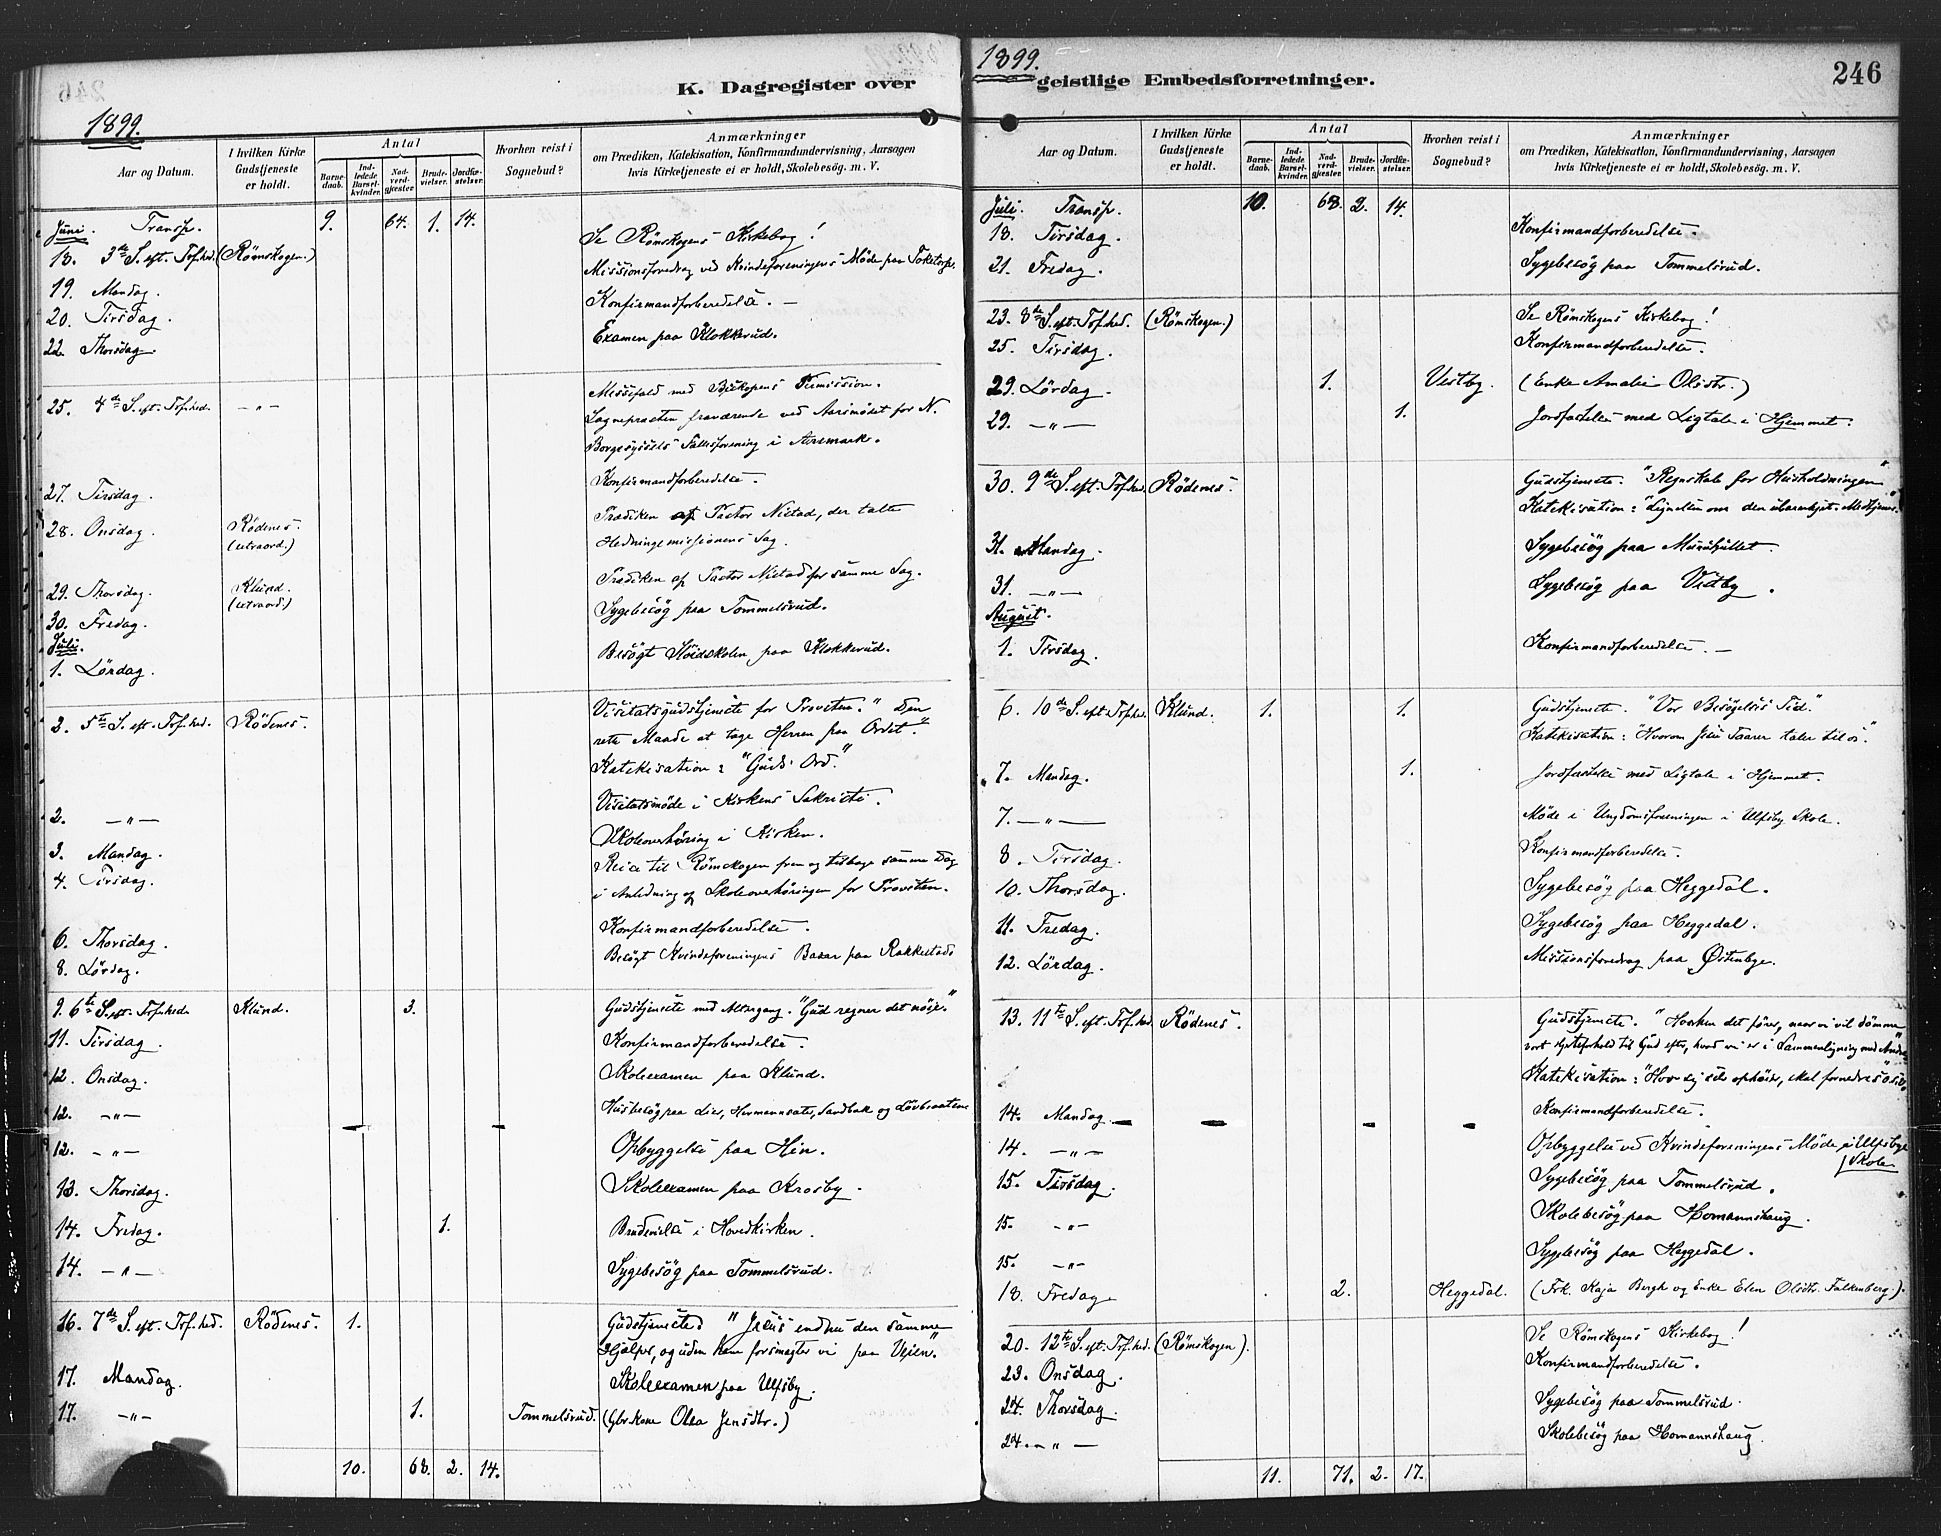 246
1899.
K. Dagregister over
1899.
Aar og Datum.
I hvilken Kirke Gudstjeneste er holdt.
Antal
Barne- daab.
Ind- ledede Barsel- kvinder.
Nad- verd- gjester
Brude- vielser.
Jordfæ- stelser.
Hvorhen reist i Sognebud?
Anmærkninger
om Prædiken, Katekisation, Konfirmandundervisning, Aarsagen
hvis Kirketjeneste ei er holdt, Skolebesøg. m. V.
Juni. Transp. 9. 64. 1. 14.
18. 3de S. eft. Tref.hed. (Rømskogen.) Se Rømskogens Kirkebog!
Missionsforedrag ved Kvindeforeningens Møde paa Toketorp.
19. Mandag.
20. Tirsdag. Konfirmandforberedelse. —
22. Thorsdag. Examen paa Klokkerud.
25. 4de S. eft. Tref.hed. —"— Messefald med Biskopens Permission.
Sognepræsten fraværende ved Aarsmødet for N.
Borgesyssels Fællesforening i Aremark.
27. Tirsdag. Konfirmandforberedelse.
28. Onsdag. Rødenes. (extraord.) Prædiken af Pastor Nistad, der talte
Hedningemissionens Sag.
29. Thorsdag. Klund. (extraord.) Prædiken af Pastor Nistad for samme Sag.
30. Fredag. Sygebesøg paa Tommelsrud.
Juli.
1. Lørdag. Besøgt Høidskolen paa Klokkerud.
2. 5te S. eft. Tref.hed. Rødenes. Visitatsgudstjeneste for Provsten. "Den
rette Maade at tage Herren paa Ordet."
Katekisation: "Guds Ord."
2. —"— Visitatsmøde i Kirkens Sakristi.
3. Mandag. Skoleoverhøring i Kirken.
4. Tirsdag. Reise til Rømskogen frem og tilbage samme Dag
i Anledning af Skoleoverhøringen for Provsten.
6. Thorsdag. Konfirmandforberedelse.
8. Lørdag. Besøgt Kvindeforeningens Bazar paa Rakkestad.
9. 6te S. eft. Tref.hed. Klund. 3. Gudstjeneste med Altergang. "Gud regner det nøie."
11. Tirsdag. Konfirmandforberedelse.
12. Onsdag. Skoleexamen paa Klund.
12. —"— Husbesøg paa Lier, Hermansæter, Sandbæk og Løvbraatene
12. —"— Opbyggelse paa Hen.
13. Thorsdag. Skoleexamen paa Krosby.
14. Fredag. 1. Brudevielse i Hovedkirken.
14. —"— Sygebesøg paa Tommelsrud.
16. 7de S. eft. Tref.hed. Rødenes. 1. Gudstjeneste. "Jesus endnu den samme
Hjælper, og uden ham forsmægter vi paa Veien."
17. Mandag. Skoleexamen paa Ulfsby.
17. —"— 1. Tommelsrud. (Gbr.kone Olea Jensdtr.)
10. 68. 2. 14.
1899.
geistlige Embedsforretninger.
246
Aar og Datum.
I hvilken Kirke Gudstjeneste er holdt.
Antal
Barne- daab.
Ind- ledede Barsel- kvinder.
Nad- verd- gjester
Brude- vielser.
Jordfæ- stelser.
Hvorhen reist i Sognebud?
Anmærkninger
om Prædiken, Katekisation, Konfirmandundervisning, Aarsagen
hvis Kirketjeneste ei er holdt, Skolebesøg. m. V.
Juli. Transp. 10. 68. 2. 14.
18. Tirsdag. Konfirmandforberedelse.
21. Fredag. Sygebesøg paa Tommelsrud.
23. 8de S. eft. Tref.hed. (Rømskogen.) Se Rømskogens Kirkebog!
25. Tirsdag. Konfirmandforberedelse.
29. Lørdag. 1. Vestby. (Enke Amalie Olsdtr.)
29. —"— 1. Jordfæstelse med Ligtale i Hjemmet.
30. 9de S. eft. Tref.hed. Rødenes. Gudstjeneste. "Regnskab for Husholdningen"
Katekisation: "Lignelsen om den ubarmhjert. Medtjener."
31. Mandag. Sygebesøg paa
31. —"— Sygebesøg paa Vestby.
August.
1. Tirsdag. Konfirmandforberedelse. —
6. 10de S. eft. Tref.hed. Klund. 1. 1. Gudstjeneste. "Vor Besøgelses Tid."
Katekisation: "Hvorom Jesu Taarer taler til os."
7. Mandag. 1. Jordfæstelse med Ligtale i Hjemmet.
7. —"— Møde i Ungdomsforeningen i Ulfsby Skole.
8. Tirsdag. Konfirmandforberedelse.
10. Thorsdag. Sygebesøg paa Heggedal.
11. Fredag. Sygebesøg paa Heggedal.
12. Lørdag. Missionsforedrag paa Østenbye.
13. 11te S. eft. Tref.hed. Rødenes. Gudstjeneste. "Hvorhen det fører, naar vi vil dømme
vort Hjerteforhold til Gud efter, hvad vi er i Sammenligning med Andre"
Katekisation: "Hver sig selv ophøier, skal fornedres o.s.v."
14. Mandag. Konfirmandforberedelse.
14. —"— Opbyggelse ved Kvindeforeningens Møde i Ulfsby
Skole
15. Tirsdag. Sygebesøg paa Tommelsrud.
15. —"— Skolebesøg paa Homannshaug.
15. —"— Sygebesøg paa Heggedal.
18. Fredag 2. Heggedal. (Frk. Kaja Bergh og Enke Elen Olsdtr. Falkenberg.)
20. 12te S. eft. Tref.hed. (Rømskogen). Se Rømskogens Kirkebog!
23. Onsdag. Konfirmandforberedelse.
24. Thorsdag. Sygebesøg paa Tommelsrud.
24. —"— Skolebesøg paa Homannshaug.
11. 71. 2. 17.